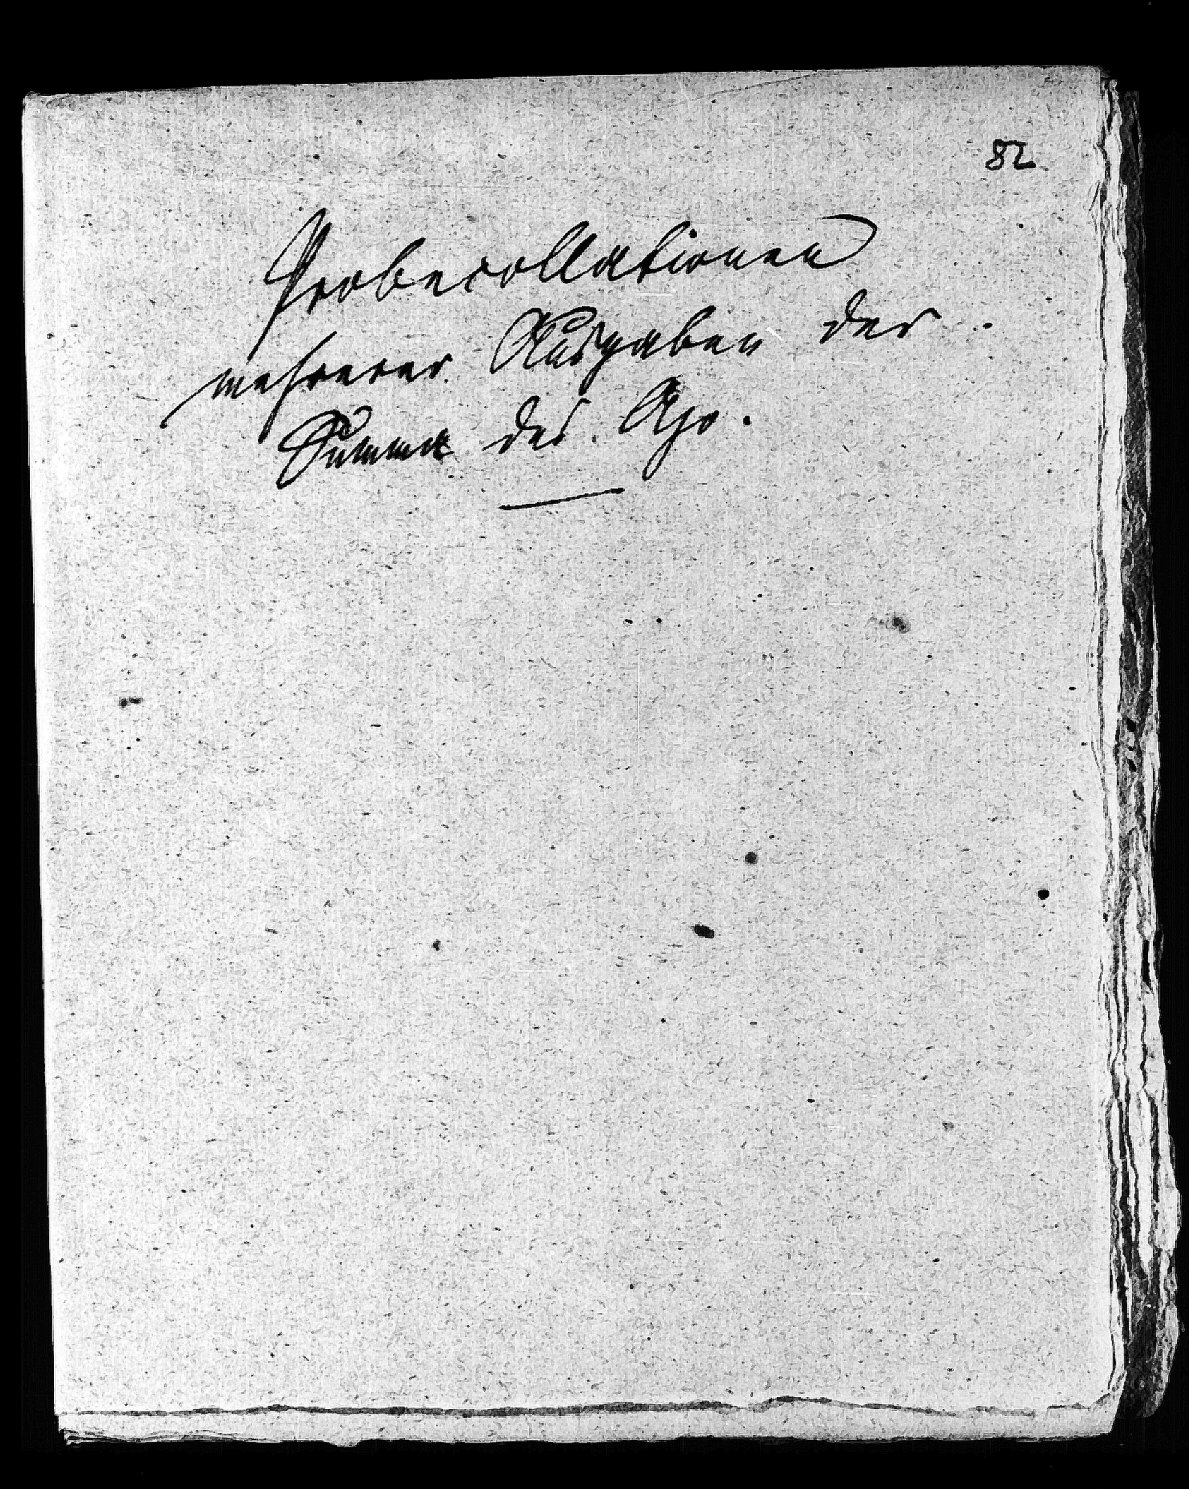 82
Probecollationen
mehrerer Ausgaben der
Summa des Azo.